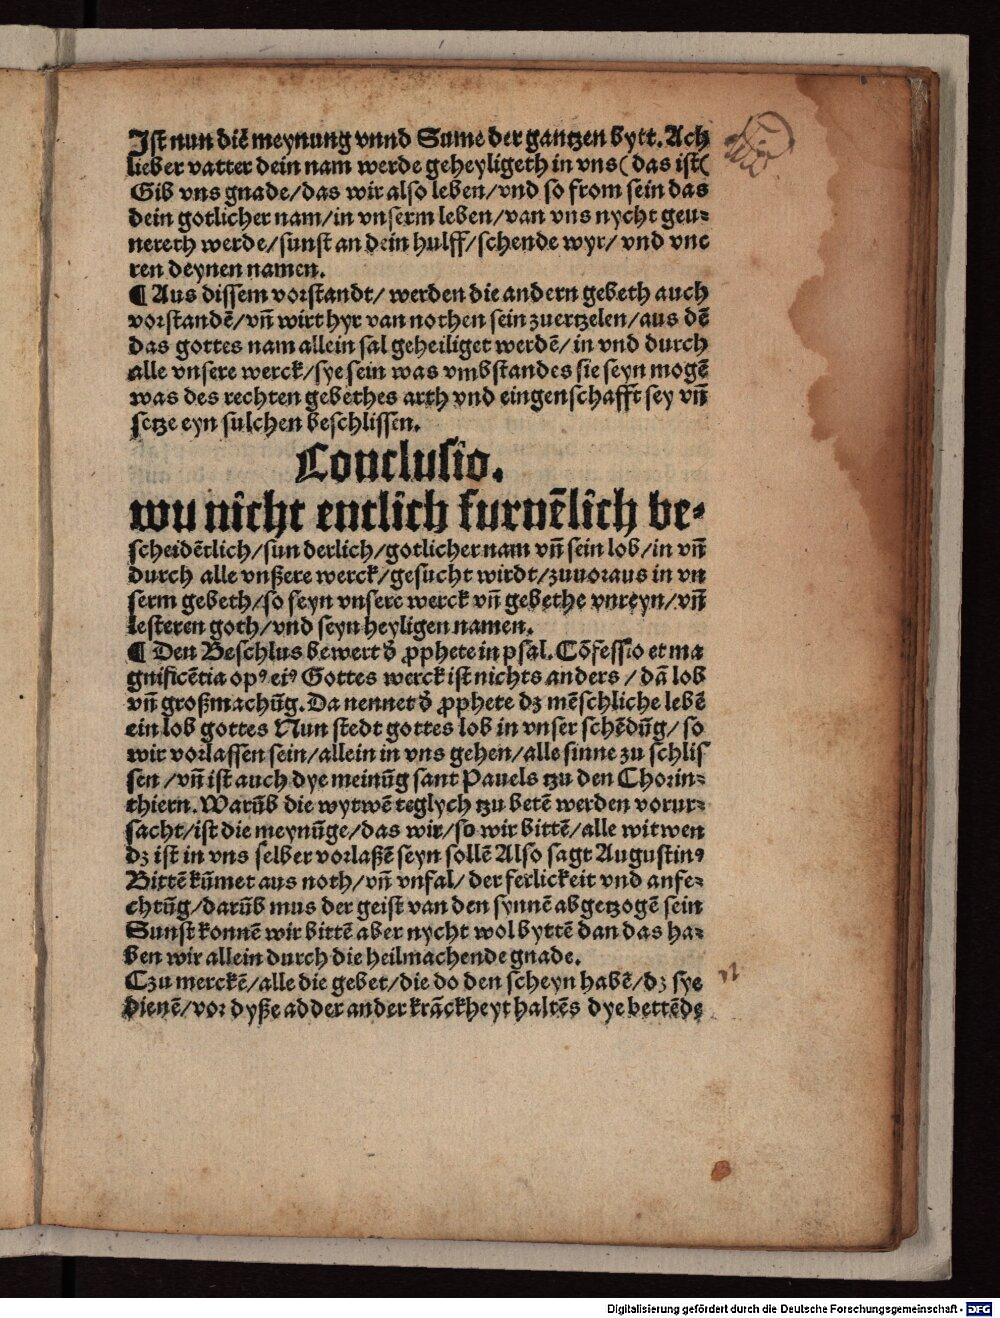 Ist nun diē meynung vnnd Sume der gantzen bytt. Ach
lieber vatter dein nam werde geheyligeth in vns ( das ist (
Gib vns gnade/das wir also leben/vnd so from sein das
dein gotlicher nam/in vnserm leben/van vns nycht geu⸗
nereth werde/sunst an dein hulff/schende wyr/ vnd vne
ren deynen namen.
¶ Aus dissem vorstandt/ werden die andern gebeth auch
vorstandē/vn̄ wirt hyr van nothen sein zuertzelen/aus dē
das gottes nam allein sal geheiliget werdē/ in vnd durch
alle vnsere werck/sye sein was vmbstandes sie seyn mogē
was des rechten gebethes arth vnd eingenschafft sey vn̄
setze eyn sulchen beschlissen.
Conclusio.
wu nicht entlich furnēlich be⸗
scheidētlich/sun derlich/gotlicher nam vn̄ sein lob/in vn̄
durch alle vnßere werck/gesucht wirdt/zuuoraus in vn
serm gebeth/so seyn vnsere werck vn̄ gebethe vnreyn/vn̄
lesteren goth/vnd seyn heyligen namen.
¶ Den Beschlus bewert d̄ ꝓphete in psal. Cōfessio et ma
gnificētia opꝰ eiꝰ Gottes werck ist nichts anders / dā lob
vn̄ großmachūg. Da nennet d̄ ꝓphete dʒ mēschliche lebē
ein lob gottes Nun stedt gottes lob in vnser schēdūg/ so
wir vorlassen sein/allein in vns gehen/alle sinne zu schlis
sen /vn̄ ist auch dye meinūg sant Pauels tzu den Chorin⸗
thiern. Warūb die wytwē teglych tzu betē werden vorur⸗
sacht/ist die meynūge/das wir/so wir bittē/alle witwen
dʒ ist in vns selber vorlaßē seyn sollē Also sagt Augustinꝰ
Bittē kūmet aus noth/vn̄ vnfal/ der ferlickeit vnd anfe⸗
chtūg/darūb mus der geist van den synnē abgetzogē sein
Sunst konnē wir bittē aber nycht wol byttē dan das ha⸗
ben wir allein durch die heilmachende gnade.
Czu merckē/alle die gebet/die do den scheyn habē/dʒ sye
dienē/vor dyße adder ander krāckheyt haltēs dye bettēde
Digitalisierung gefördert durch die Deutsche Forschungsgemeinschaft - DFG